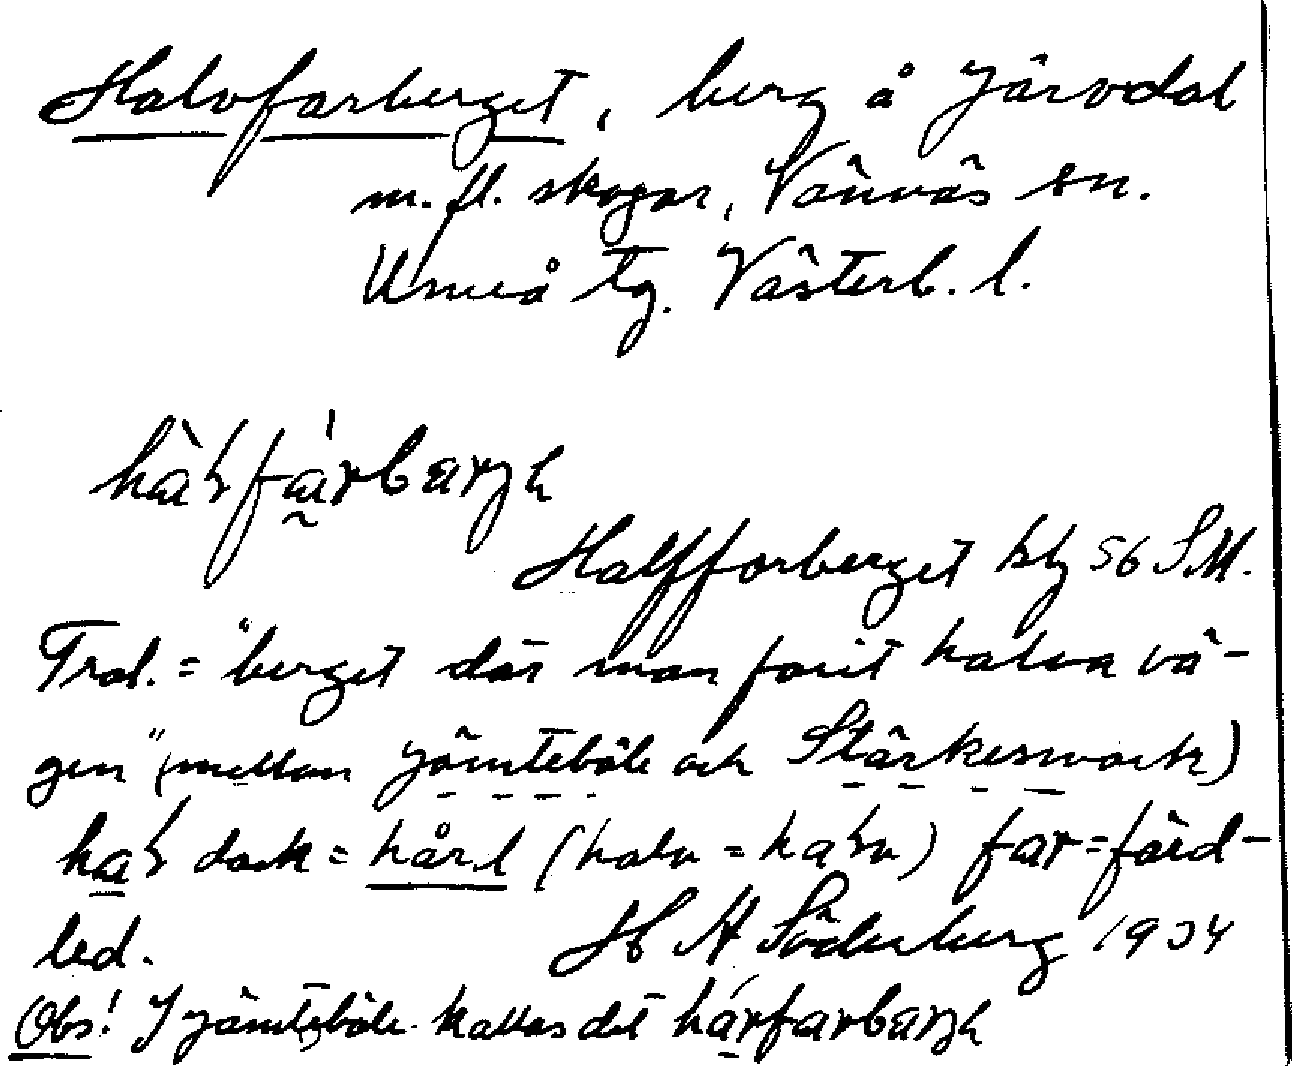 Halvfarberget, berg å Järvdal
m. fl. skogar, Vännäs sn.
Umeå tg. Västerb. l.
Halffarberget bl 56 S.M.
Trol. = "berget där man farit halva vä-
gen" (mellan Jämteböle och Stärkesmark)
dock = hård (halv = ) far = färd-
led. H A Söderberg 1934
Obs! I Jämteböle kallas det hárfarbarg